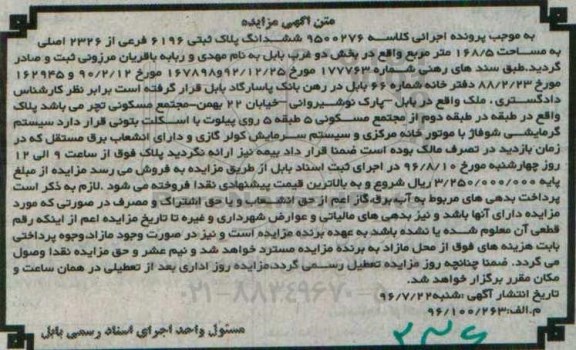 متن آگهی مزایده
به موجب پرونده اجرائی کلاسه ۹۵۰۰۲۷۶ ششدانگ پلاک ثبتی ۶۱۹۶ فرعی از ۲۳۲۶ اصلی
به مساحت ۱۶۸/۵ متر مربع واقع در بخش دو غرب بابل به نام مهدی و ربابه باقریان مرزونی ثبت و صادر
گردید.طبق سند های رهنی شماره ۱۷۷۷۶۲ مورخ ۹۲/۱۲/۲۵و۱۶۷۸۹۸ مورخ ۹۰/۲/۱۲ و ۱۶۲۹۴۵
مورخ ۸۸/۲/۲۳ دفتر خانه شماره ۶۶ بابل در رهن بانک پاسارگاد بابل قرار گرفته است برابر نظر کارشناس
دادگستری ، ملک واقع در بابل -پارک نوشیروانی -خیابان ۲۲ بهمن-مجتمع مسکونی تچر می باشد پلاک
واقع در طبقه در طبقه دوم از مجتمع مسکونی ۵ طبقه ۵ روی پیلوت با اسکلت بتونی قرار دارد سیستم
گرمایشی شوفاژ با موتور خانه مرکزی و سیستم سرمایش کولر گازی و دارای انشعاب برق مستقل که در
زمان بازدید در تصرف مالک بوده است ضمنا قرار داد بیمه نیز ارائه نگردید پلاک فوق از ساعت ۹ الی ۱۲
روز چهارشنبه مورخ ۹۶/۸/۱۰ در اجرای ثبت اسناد بابل از طریق مزایده به فروش می رسد مزایده از مبلغ
پایه ۳/۲۵۰/۰۰۰/۰۰۰ ریال شروع و به بالاترین قیمت پیشنهادی نقدا فروخته می شود .لازم به ذکر است
پرداخت بدهی های مربوط به آب،برق،گاز اعم از حق انشعاب و یا حق اشتراک و مصرف در صورتی که مورد
مزایده دارای آنها باشد و نیز بدهی های مالیاتی و عوارض شهرداری و غیره تا تاریخ مزایده اعم از اینکه رقم
قطعی آن معلوم شده یا نشده باشد به عهده برنده مزایده است و نیز در صورت وجود مازاد،وجوه پرداختی
بابت هزینه های فوق از محل مازاد به برنده مزایده مسترد خواهد شد و نیم عشر و حق مزایده نقدا وصول
می گردد. ضمنا چنانچه روز مزایده تعطیل رسمی گردد،مزایده روز اداری بعد از تعطیلی در همان ساعت و
مکان مقرر برگزار خواهد شد.
تاریخ انتشار آگهی :شنبه ۹۶/۷/۲۲
م.الف:۹۶/۱۰۰/۲۶۳
مسئول واحد اجرای اسناد رسمی بابل
۰۲۱-۸۸۳۴۹۶۷۰-۵